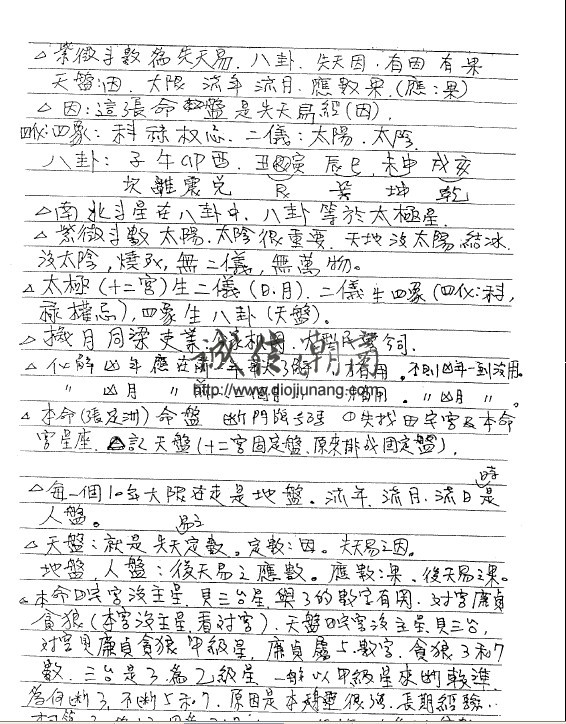 △紫微斗數為先天易.八卦.先天因.有因有果
天盤:因.大限 流年 流月.應數果.(應:果)
△因:這張命盤是先天易經(因).
四儀:四象:科祿权忌.二儀:太陽.太陰
八卦:子午卯酉.丑寅 辰巳.未申戌亥
坎離震兌 艮 巽 坤 乾
△南北斗星在八卦中.八卦等於太極星.
△紫微斗數太陽.太陰很重要.天地沒太陽.結冰.
沒太陰,燒死,無二儀,無萬物。
△太極(十二宮)生二儀(日.月).二儀生四象(四儀:科,
祿權忌),四象生八卦(天盤).
△機月同梁吏
△化解凶年應在前一年 有用.不到凶年一到沒用.
〃 凶月 〃 前 有用.〃凶月〃.
△本命 命盤 断門牌号碼 先找田宅宮及本命
宮星座.△記天盤(十二宮固定盤.原來排成固定盤).
△每一個10年大限在走是地盤。流年.流月.流日時是
人盤。
△天盤:就是先天易之定數。定數:因。先天易之因。
地盤.人盤:後天易之應數。應數:果.後天易之果。
△本命田宅宮沒主星.見三台星.與3的數字有関.対宮廉貞
貪狼(本宮沒主星.看対宮).天盤田宅宮沒主星.見三台,
対宮見廉貞貪狼甲級星.廉貞屬5數字.貪狼3和7
數.三台是3.為乙級星 一般以甲級星來断較準.
為何断3.不断5和7.原因是本 很強.長期經驗..